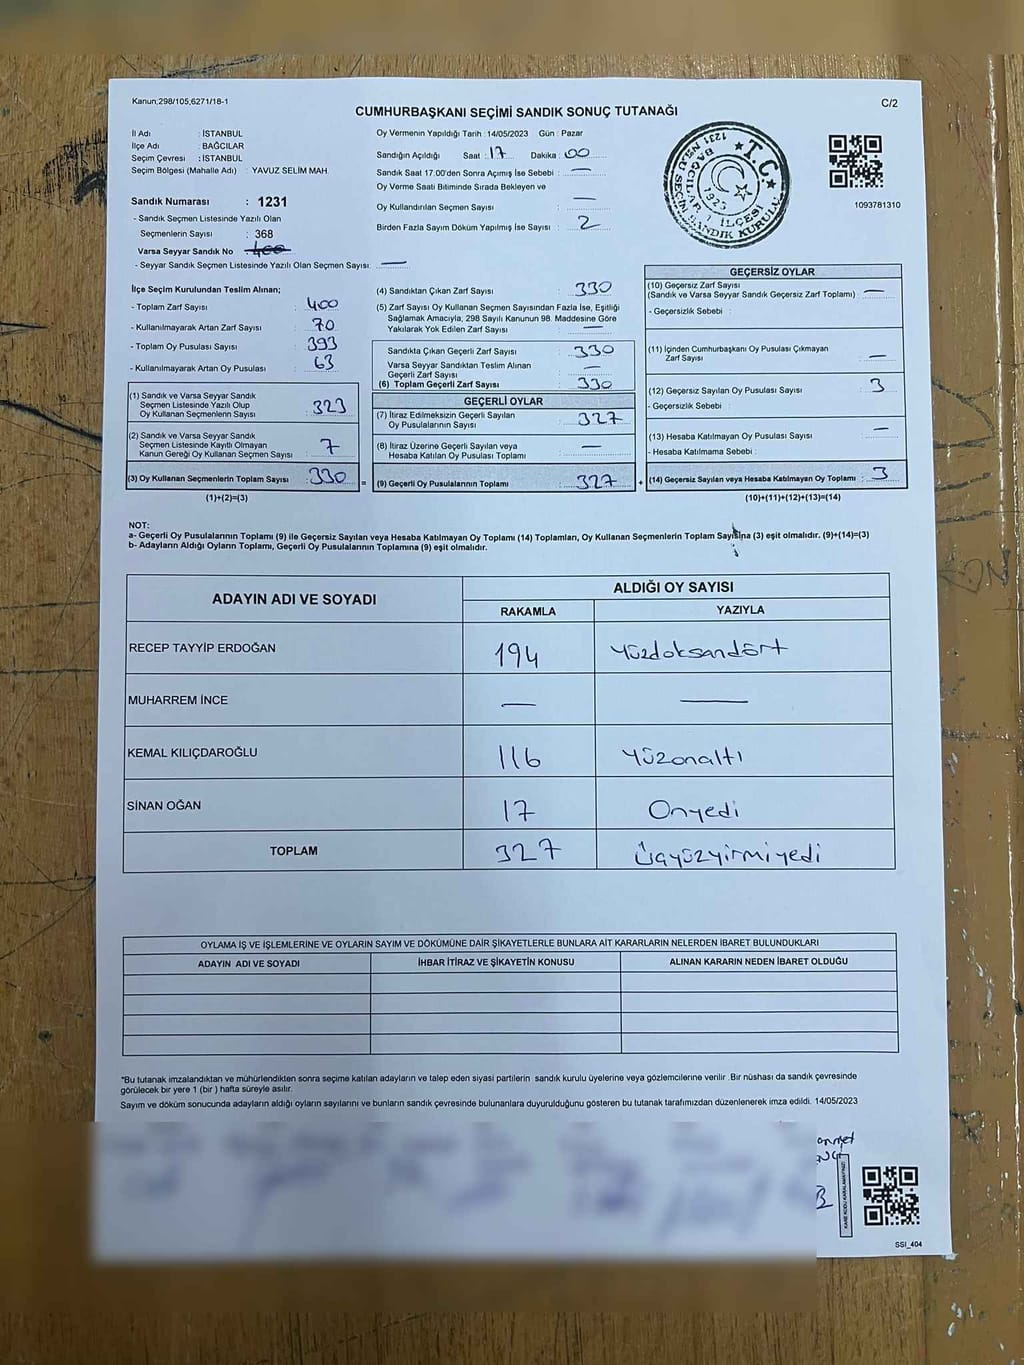 Kanun;298/105,6271/18-1
C/2
CUMHURBAŞKANI SEÇİMİ SANDIK SONUÇ TUTANAĞI
İl Adı : İSTANBUL
İlçe Adı : BAĞCILAR
Seçim Çevresi : İSTANBUL
Seçim Bölgesi (Mahalle Adı) : YAVUZ SELİM MAH.
Sandık Numarası : 1231
- Sandık Seçmen Listesinde Yazılı Olan
Seçmenlerin Sayısı : 368
Varsa Seyyar Sandık No 400
- Seyyar Sandık Seçmen Listesinde Yazılı Olan Seçmen Sayısı: —
Oy Vermenin Yapıldığı Tarih :14/05/2023 Gün : Pazar
Sandığın Açıldığı Saat : 17 Dakika : 00
Sandık Saat 17:00'den Sonra Açımış İse Sebebi : —
Oy Verme Saati Bitiminde Sırada Bekleyen ve
Oy Kullandırılan Seçmen Sayısı : —
Birden Fazla Sayım Döküm Yapılmış İse Sayısı : 2
T.C.
BAĞCILAR 1. İLÇESİ
1231 NOLU SEÇİM SANDIK KURULU
1923
1093781310
İlçe Seçim Kurulundan Teslim Alınan;
- Toplam Zarf Sayısı : 400
- Kullanılmayarak Artan Zarf Sayısı : 70
- Toplam Oy Pusulası Sayısı : 393
- Kullanılmayarak Artan Oy Pusulası : 63
(1) Sandık ve Varsa Seyyar Sandık
Seçmen Listesinde Yazılı Olup
Oy Kullanan Seçmenlerin Sayısı : 323
(2) Sandık ve Varsa Seyyar Sandık
Seçmen Listesinde Kayıtlı Olmayan
Kanun Gereği Oy Kullanan Seçmen Sayısı : 7
(3) Oy Kullanan Seçmenlerin Toplam Sayısı : 330
(1)+(2)=(3)
(4) Sandıktan Çıkan Zarf Sayısı : 330
(5) Zarf Sayısı Oy Kullanan Seçmen Sayısından Fazla İse, Eşitliği
Sağlamak Amacıyla; 298 Sayılı Kanunun 98. Maddesine Göre
Yakılarak Yok Edilen Zarf Sayısı : —
Sandıkta Çıkan Geçerli Zarf Sayısı : 330
Varsa Seyyar Sandıktan Teslim Alınan
Geçerli Zarf Sayısı : —
(6) Toplam Geçerli Zarf Sayısı : 330
GEÇERLİ OYLAR
(7) İtiraz Edilmeksizin Geçerli Sayılan
Oy Pusulalarının Sayısı : 327
(8) İtiraz Üzerine Geçerli Sayılan veya
Hesaba Katılan Oy Pusulası Toplamı : —
= (9) Geçerli Oy Pusulalarının Toplamı : 327
GEÇERSİZ OYLAR
(10) Geçersiz Zarf Sayısı
(Sandık ve Varsa Seyyar Sandık Geçersiz Zarf Toplamı) : —
- Geçersizlik Sebebi :
(11) İçinden Cumhurbaşkanı Oy Pusulası Çıkmayan
Zarf Sayısı : —
(12) Geçersiz Sayılan Oy Pusulası Sayısı : 3
- Geçersizlik Sebebi :
(13) Hesaba Katılmayan Oy Pusulası Sayısı : —
- Hesaba Katılmama Sebebi :
+ (14) Geçersiz Sayılan veya Hesaba Katılmayan Oy Toplamı : 3
(10)+(11)+(12)+(13)=(14)
NOT:
a- Geçerli Oy Pusulalarının Toplamı (9) ile Geçersiz Sayılan veya Hesaba Katılmayan Oy Toplamı (14) Toplamları, Oy Kullanan Seçmenlerin Toplam Sayısına (3) eşit olmalıdır. (9)+(14)=(3)
b- Adayların Aldığı Oyların Toplamı, Geçerli Oy Pusulalarının Toplamına (9) eşit olmalıdır.
ADAYIN ADI VE SOYADI
ALDIĞI OY SAYISI
RAKAMLA YAZIYLA
RECEP TAYYİP ERDOĞAN 194 Yüzdoksandört
MUHARREM İNCE — —
KEMAL KILIÇDAROĞLU 116 Yüzonaltı
SİNAN OĞAN 17 Onyedi
TOPLAM 327 Üçyüzyirmiyedi
OYLAMA İŞ VE İŞLEMLERİNE VE OYLARIN SAYIM VE DÖKÜMÜNE DAİR ŞİKAYETLERLE BUNLARA AİT KARARLARIN NELERDEN İBARET BULUNDUKLARI
ADAYIN ADI VE SOYADI İHBAR İTİRAZ VE ŞİKAYETİN KONUSU ALINAN KARARIN NEDEN İBARET OLDUĞU
*Bu tutanak imzalandıktan ve mühürlendikten sonra seçime katılan adayların ve talep eden siyasi partilerin sandık kurulu üyelerine veya gözlemcilerine verilir .Bir nüshası da sandık çevresinde
görülecek bir yere 1 (bir ) hafta süreyle asılır.
Sayım ve döküm sonucunda adayların aldığı oyların sayılarını ve bunların sandık çevresinde bulunanlara duyurulduğunu gösteren bu tutanak tarafımızdan düzenlenerek imza edildi. 14/05/2023
KARE KODU KARALAMAYINIZ!
SSI_404